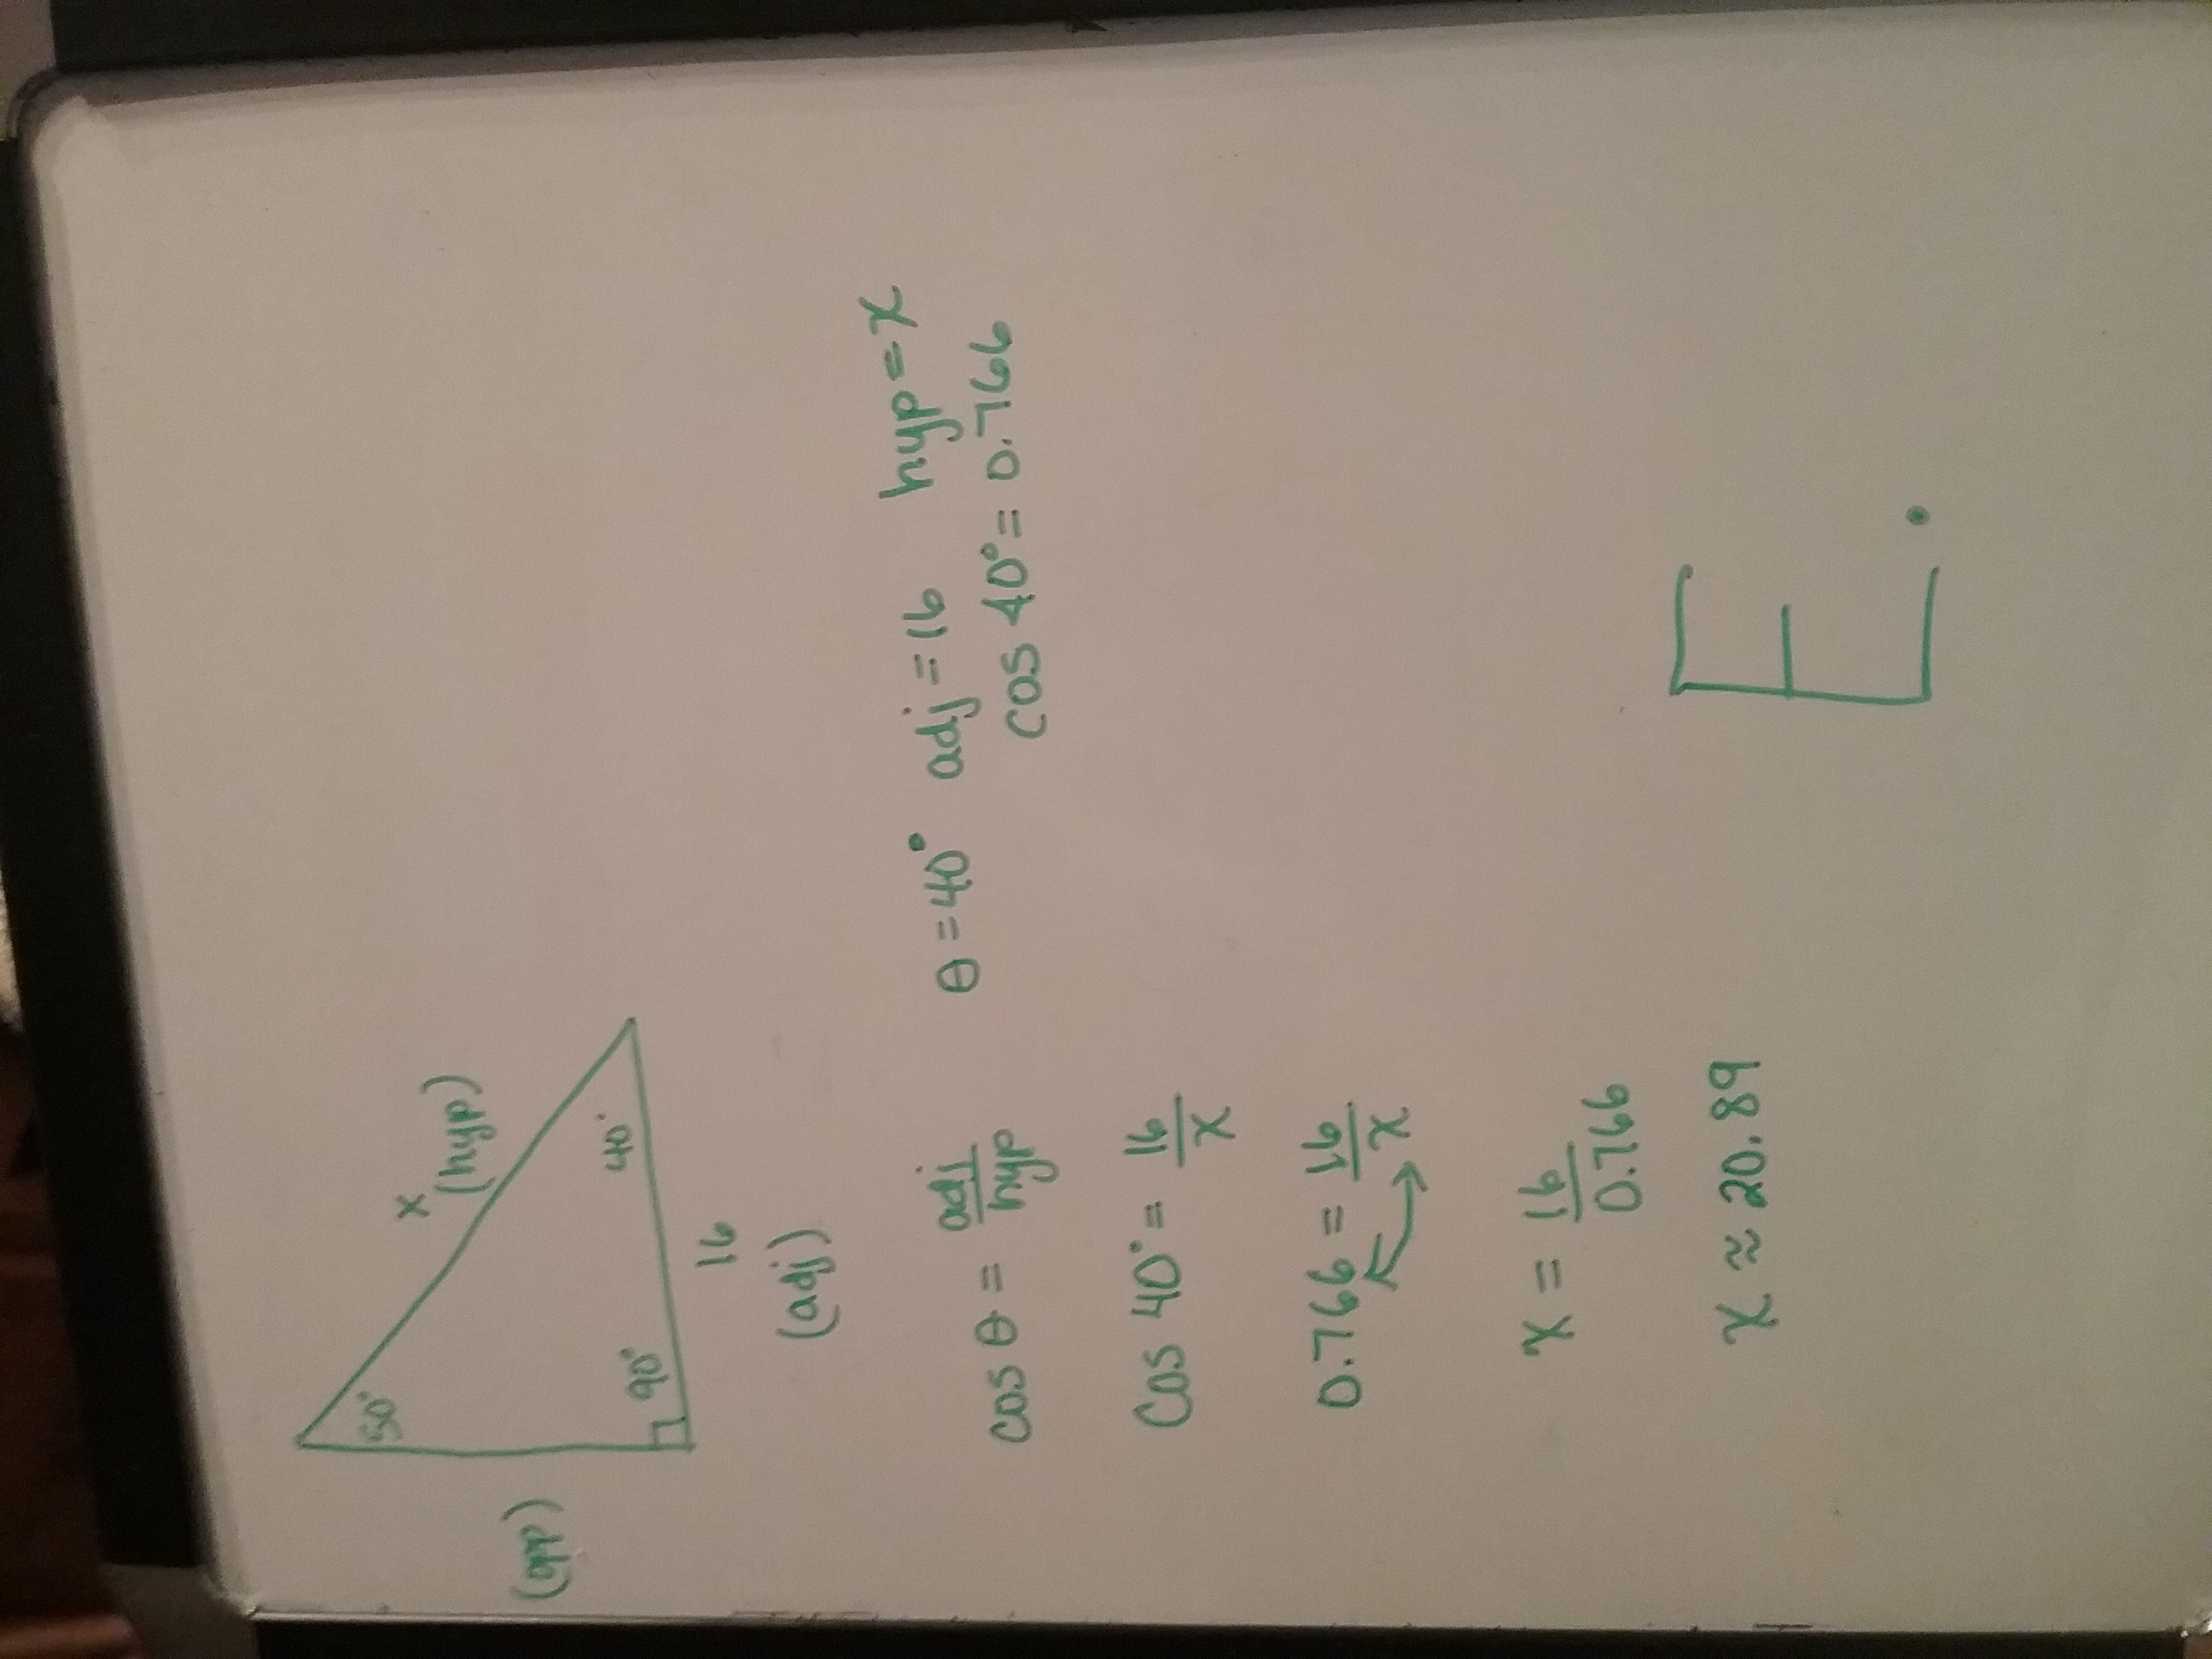 x
(hyp)
50°
(opp)
90°
40°
16
(adj)
cos θ = adj/hyp
θ = 40° adj = 16 hyp = x
cos 40° = 0.766
Cos 40° = 16/x
0.766 = 16/x
x = 16/0.766
x ≈ 20.89
E.